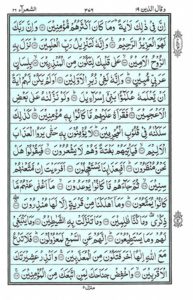 وقال الذين ١٩ الشعراء ٢٦
إِنَّ فِي ذٰلِكَ لَاٰيَةً ۗ وَمَا كَانَ اَكْثَرُهُمْ مُّؤْمِنِيْنَ ۞ وَاِنَّ رَبَّكَ
لَهُوَ الْعَزِيْزُ الرَّحِيْمُ ۞ وَاِنَّهٗ لَتَنْزِيْلُ رَبِّ الْعٰلَمِيْنَ ۞ نَزَلَ بِهِ
الرُّوْحُ الْاَمِيْنُ ۞ عَلٰى قَلْبِكَ لِتَكُوْنَ مِنَ الْمُنْذِرِيْنَ ۞ بِلِسَانٍ
عَرَبِيٍّ مُّبِيْنٍ ۞ وَاِنَّهٗ لَفِيْ زُبُرِ الْاَوَّلِيْنَ ۞ اَوَلَمْ يَكُنْ لَّهُمْ اٰيَةً
اَنْ يَّعْلَمَهٗ عُلَمٰٓؤُا بَنِيْٓ اِسْرَآءِيْلَ ۞ وَلَوْ نَزَّلْنٰهُ عَلٰى بَعْضِ
الْاَعْجَمِيْنَ ۞ فَقَرَاَهٗ عَلَيْهِمْ مَّا كَانُوْا بِهٖ مُؤْمِنِيْنَ ۞ كَذٰلِكَ
سَلَكْنٰهُ فِيْ قُلُوْبِ الْمُجْرِمِيْنَ ۞ لَا يُؤْمِنُوْنَ بِهٖ حَتّٰى يَرَوُا الْعَذَابَ
الْاَلِيْمَ ۞ فَيَاْتِيَهُمْ بَغْتَةً وَّهُمْ لَا يَشْعُرُوْنَ ۞ فَيَقُوْلُوْا هَلْ
نَحْنُ مُنْظَرُوْنَ ۞ اَفَبِعَذَابِنَا يَسْتَعْجِلُوْنَ ۞ اَفَرَءَيْتَ اِنْ مَّتَّعْنٰهُمْ
سِنِيْنَ ۞ ثُمَّ جَآءَهُمْ مَّا كَانُوْا يُوْعَدُوْنَ ۞ مَآ اَغْنٰى عَنْهُمْ مَّا
كَانُوْا يُمَتَّعُوْنَ ۞ وَمَآ اَهْلَكْنَا مِنْ قَرْيَةٍ اِلَّا لَهَا مُنْذِرُوْنَ ۞
ذِكْرٰى وَمَا كُنَّا ظٰلِمِيْنَ ۞ وَمَا تَنَزَّلَتْ بِهِ الشَّيٰطِيْنُ ۞ وَمَا يَنْبَغِيْ
لَهُمْ وَمَا يَسْتَطِيْعُوْنَ ۞ اِنَّهُمْ عَنِ السَّمْعِ لَمَعْزُوْلُوْنَ ۞ فَلَا تَدْعُ
مَعَ اللّٰهِ اِلٰهًا اٰخَرَ فَتَكُوْنَ مِنَ الْمُعَذَّبِيْنَ ۞ وَاَنْذِرْ عَشِيْرَتَكَ
الْاَقْرَبِيْنَ ۞ وَاخْفِضْ جَنَاحَكَ لِمَنِ اتَّبَعَكَ مِنَ الْمُؤْمِنِيْنَ ۞